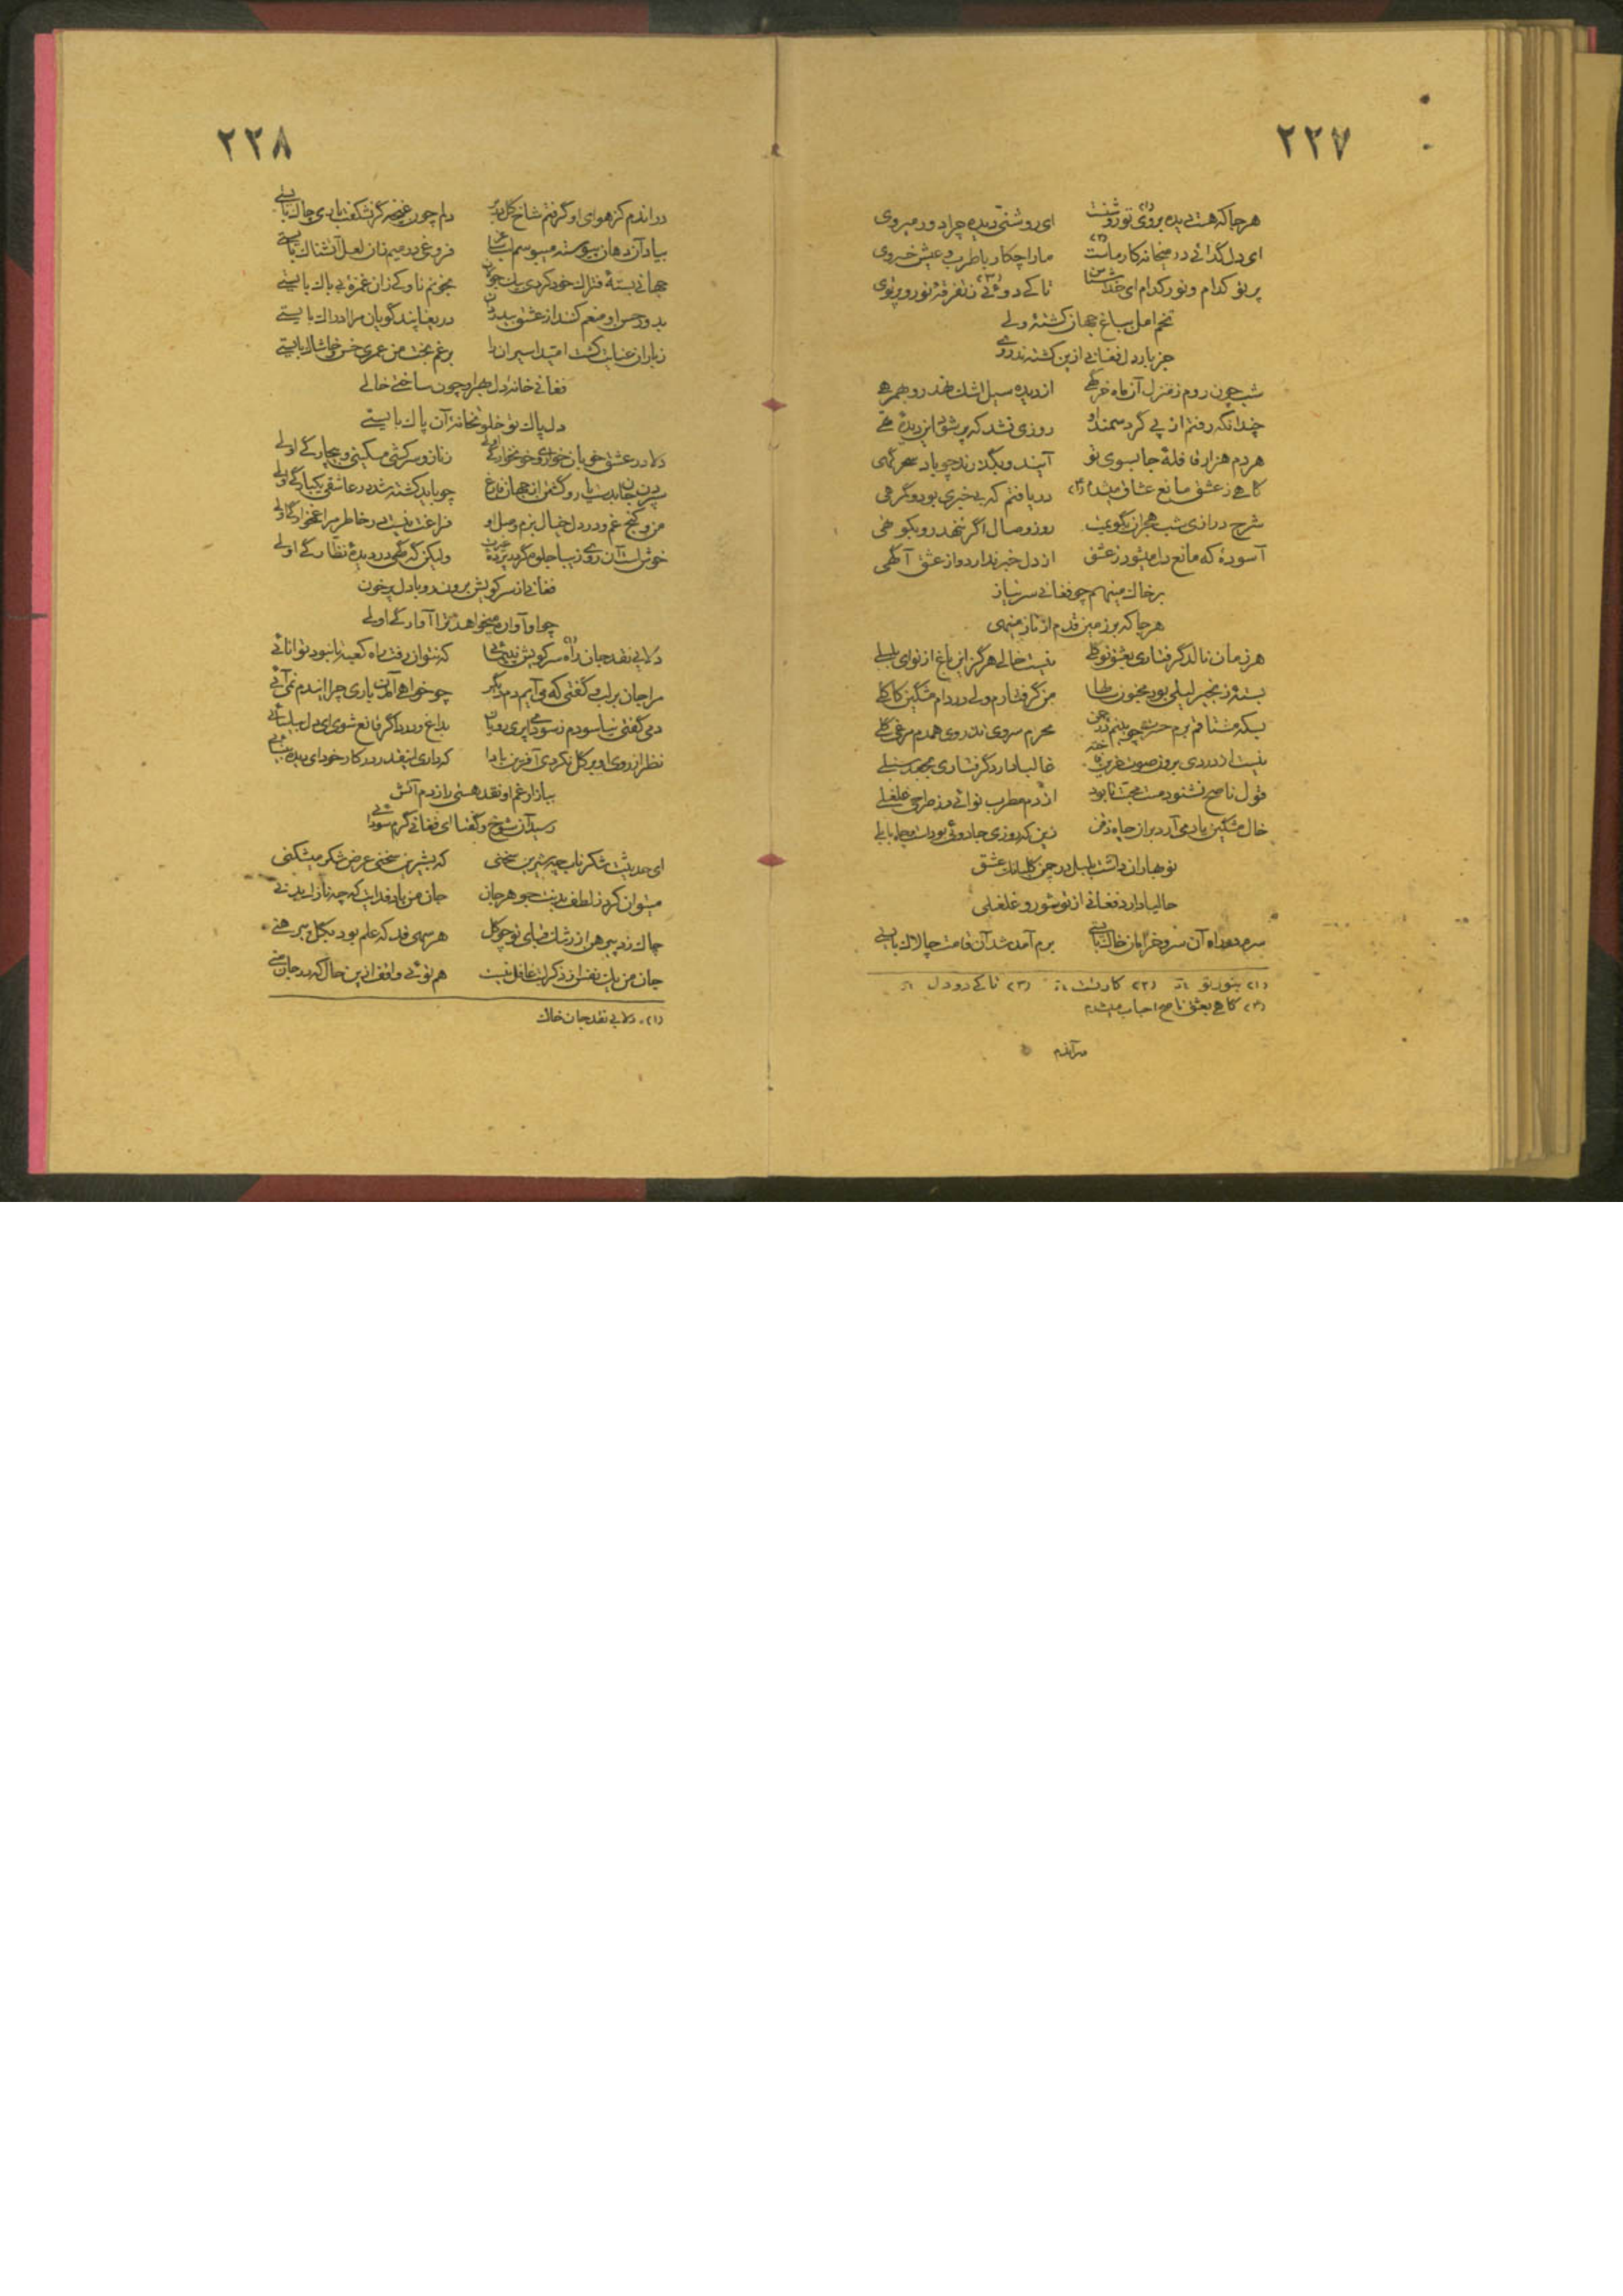 ۲۲۷
هرجا که هست دیده بروی تو روشنست ای روشنی دیده چرا دور میروی
ای دل گدائی در میخانه کار ماست ما را چکار با طرب و عیش خسروی
پرتو کدام و نور کدام ای خدا شناس تا کے دوئی ز تفرقهٔ نور و پرتوی
تخم امل بباغ جهان کشتهٔ ولے
جز بار دل فغانی ازین کشته ندروی
شب چون روم ز منزل آن ماه خرگهے از دیده سیل اشک نهد رو بهمرهے
چندانکه رفتم از پی گرد سمند او روزی نشد که پر شود این دیدهٔ تهے
هر دم هزار قافلهٔ جا بسوی تو آیند و بگذرند چو باد سحرگهی
گاهے ز عشق مانع عشاق میشدم دریافتم که بےخبری بود و گمرهی
شرح درازی شب هجران بگویمت روز وصال اگر ننهد رو بکوتهی
آسودهٔ که مانع دل میشود ز عشق از دل خبر ندارد و از عشق آگهی
بر خاک مینهم چو فغانی سر نیاز
هرجا که بر زمین قدم از ناز مینهی
هر زمان نالد گرفتاری بعشق نوگلے نیست خالے هرگز این باغ از نوای بلبلے
بستهٔ زنجیر لیلی بود مجنون من گرفتارم ولے در دام مشکین کاکلے
بسکه مشتاقم برم حسرت چو بینم در چمن محرم سروی تذروی همدم مرغی گلے
نیست از دردی بروز صوت حزین فاخته غالبا دارد گرفتاری بجعد سنبلے
قول ناصح نشنود مست محبت تا بود از دم مطرب نوائے وز صراحی غلغلے
خال مشکین یاد می آرد بر آن چاه ذقن زین که روزی جادوئی بودست و چاه بابلے
نوبهاران داشت بلبل در چمن گلبانگ عشق
حالیا دارد فغانی از تو شور و غلغلی
سرم در راه آن سرو خرامان خاک بایستے برم آمد شد آن قامت چالاک بایستے
(۱) بنور تو (۲) کار تست (۳) تا کے در و دل
(۴) گاهے بعشق ناصح احباب میشدم
در آندم
۲۲۸
در اندم کز هوای او گرفتم شاخ گل بر سر دلم چون غنچه گر نشکفت باری چاک بایستے
بیاد آن دهان پیوسته میبوسم لب فروغی در میم زان لعل آتشناک بایستے
جهانے بستهٔ فتراک خود کردی بیک جولان بخونم ناوکے زان غمزهٔ بےباک بایستے
بدور حسن او منعم کنند از عشق بیدردان دریغا پند گویان مرا ادراک بایستے
ز باران عنایت کشت امید اسیران را برغم بخت من عمری خس و خاشاک بایستے
فغانے خانهٔ دل بهر او چون ساختے خالے
دل پاک تو خلوتخانهٔ آن پاک بایستے
دلا در عشق خوبان خواری و خونخوارگے اولے ز ناز و سرکشی مسکینی و بیچارگے اولے
چو باید کشته شد در عاشقی یکبارگے اولے
من و کنج غم و در دل خیال بزم وصل او فراغت نیست در خاطر مرا غمخوارگے اولے
خوش است آن روے زیبا جلوه گر در پرده ولیکن گه گهے در دیدهٔ نظارگے اولے
فغانے از سر کویش برون رو با دل پر خون
چو او آواره میخواهد ترا آوارگے اولے
دلا بی نقد جان راه سر کویش که نتوان رفت راه کعبه را نبود توانائے
مرا جان بر لب و گفتی که می آیم دم دیگر چو خواهے آمدن باری چرا ایندم نمی آئے
دمی گفتی نیاسودم ز سودای پری رویان بداغ و درد اگر قانع شوی ای دل بیاسائے
نظر از روی او بر گل نکردی آفرین بادا که داری اینقدر در کار خود ای دیده بینائے
ببازار غم او نقد هستی را زدم آتش
رسید آن شوخ و گفتا ای فغانے گرم سودائے
ای حدیثت شکر ناب چه شیرین سخنی که بشیرین سخنی عرض شکر میشکنی
میتوان کرد ز لطف بدنت جوهر جان جان من باد فدایت که چه نازک بدنے
چاک زد پیرهن از رشک قبای تو چو گل هر سهی قد که علم بود بگل پیرهنے
جان من یک نفس از ذکر تو غافل نیست هم توئے واقف ازین حال که در جان منے
(۱) دلا بی نقد جان خاک